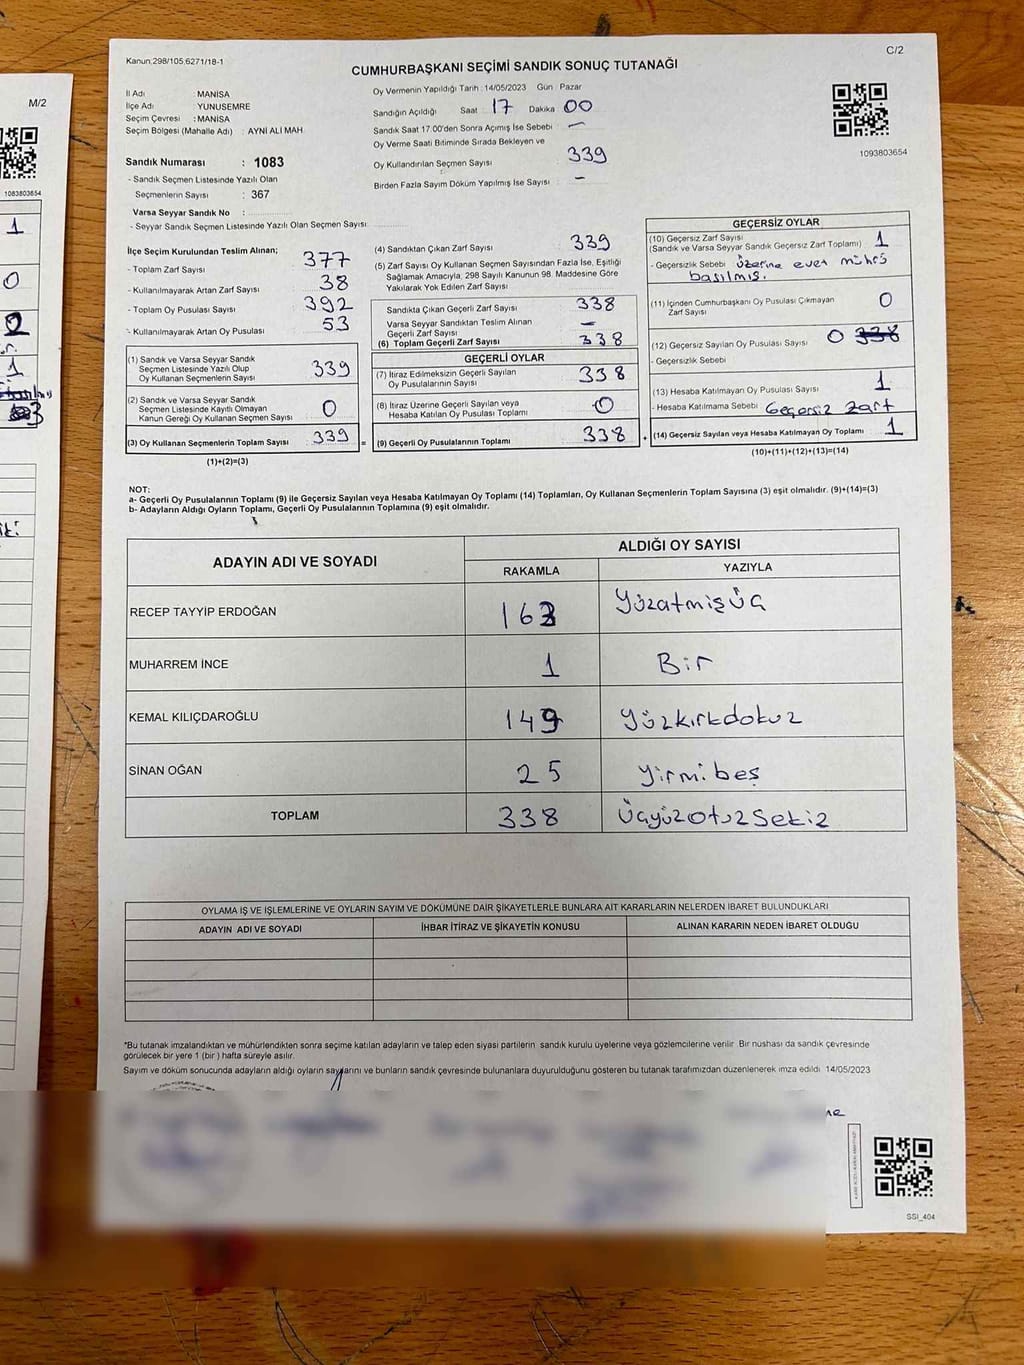 Kanun:298/105,6271/18-1
C/2
CUMHURBAŞKANI SEÇİMİ SANDIK SONUÇ TUTANAĞI
İl Adı MANİSA
İlçe Adı YUNUSEMRE
Seçim Çevresi : MANİSA
Seçim Bölgesi (Mahalle Adı) : AYNİ ALİ MAH.
Oy Vermenin Yapıldığı Tarih : 14/05/2023 Gün : Pazar
Sandığın Açıldığı Saat 17 Dakika 00
Sandık Saat 17.00'den Sonra Açımış İse Sebebi : —
Oy Verme Saati Bitiminde Sırada Bekleyen ve
Oy Kullandırılan Seçmen Sayısı 339
Birden Fazla Sayım Döküm Yapılmış İse Sayısı : —
1093803654
Sandık Numarası : 1083
- Sandık Seçmen Listesinde Yazılı Olan
Seçmenlerin Sayısı : 367
Varsa Seyyar Sandık No :
- Seyyar Sandık Seçmen Listesinde Yazılı Olan Seçmen Sayısı:
İlçe Seçim Kurulundan Teslim Alınan;
- Toplam Zarf Sayısı 377
- Kullanılmayarak Artan Zarf Sayısı : 38
- Toplam Oy Pusulası Sayısı : 392
- Kullanılmayarak Artan Oy Pusulası 53
(1) Sandık ve Varsa Seyyar Sandık
Seçmen Listesinde Yazılı Olup
Oy Kullanan Seçmenlerin Sayısı 339
(2) Sandık ve Varsa Seyyar Sandık
Seçmen Listesinde Kayıtlı Olmayan
Kanun Gereği Oy Kullanan Seçmen Sayısı 0
(3) Oy Kullanan Seçmenlerin Toplam Sayısı 339 =
(1)+(2)=(3)
(4) Sandıktan Çıkan Zarf Sayısı 339
(5) Zarf Sayısı Oy Kullanan Seçmen Sayısından Fazla İse, Eşitliği
Sağlamak Amacıyla, 298 Sayılı Kanunun 98. Maddesine Göre
Yakılarak Yok Edilen Zarf Sayısı :
Sandıkta Çıkan Geçerli Zarf Sayısı 338
Varsa Seyyar Sandıktan Teslim Alınan
Geçerli Zarf Sayısı —
(6) Toplam Geçerli Zarf Sayısı 338
GEÇERLİ OYLAR
(7) İtiraz Edilmeksizin Geçerli Sayılan
Oy Pusulalarının Sayısı 338
(8) İtiraz Üzerine Geçerli Sayılan veya
Hesaba Katılan Oy Pusulası Toplamı 0
(9) Geçerli Oy Pusulalarının Toplamı 338 +
GEÇERSİZ OYLAR
(10) Geçersiz Zarf Sayısı
(Sandık ve Varsa Seyyar Sandık Geçersiz Zarf Toplamı) 1
- Geçersizlik Sebebi üzerine evet mührü
basılmış.
(11) İçinden Cumhurbaşkanı Oy Pusulası Çıkmayan
Zarf Sayısı 0
(12) Geçersiz Sayılan Oy Pusulası Sayısı 0 338
- Geçersizlik Sebebi
(13) Hesaba Katılmayan Oy Pusulası Sayısı 1
- Hesaba Katılmama Sebebi Geçersiz Zarf
(14) Geçersiz Sayılan veya Hesaba Katılmayan Oy Toplamı 1
(10)+(11)+(12)+(13)=(14)
NOT:
a- Geçerli Oy Pusulalarının Toplamı (9) ile Geçersiz Sayılan veya Hesaba Katılmayan Oy Toplamı (14) Toplamları, Oy Kullanan Seçmenlerin Toplam Sayısına (3) eşit olmalıdır. (9)+(14)=(3)
b- Adayların Aldığı Oyların Toplamı, Geçerli Oy Pusulalarının Toplamına (9) eşit olmalıdır.
ADAYIN ADI VE SOYADI
ALDIĞI OY SAYISI
RAKAMLA YAZIYLA
RECEP TAYYİP ERDOĞAN 163 yüzatmışüç
MUHARREM İNCE 1 Bir
KEMAL KILIÇDAROĞLU 149 yüzkırkdokuz
SİNAN OĞAN 25 yirmibeş
TOPLAM 338 üçyüzotuzsekiz
OYLAMA İŞ VE İŞLEMLERİNE VE OYLARIN SAYIM VE DÖKÜMÜNE DAİR ŞİKAYETLERLE BUNLARA AİT KARARLARIN NELERDEN İBARET BULUNDUKLARI
ADAYIN ADI VE SOYADI İHBAR İTİRAZ VE ŞİKAYETİN KONUSU ALINAN KARARIN NEDEN İBARET OLDUĞU
*Bu tutanak imzalandıktan ve mühürlendikten sonra seçime katılan adayların ve talep eden siyasi partilerin sandık kurulu üyelerine veya gözlemcilerine verilir. Bir nüshası da sandık çevresinde
görülecek bir yere 1 (bir) hafta süreyle asılır.
Sayım ve döküm sonucunda adayların aldığı oyların sayılarını ve bunların sandık çevresinde bulunanlara duyurulduğunu gösteren bu tutanak tarafımızdan düzenlenerek imza edildi. 14/05/2023
SSİ_404
M/2
1083803654
1
0
2
1
3